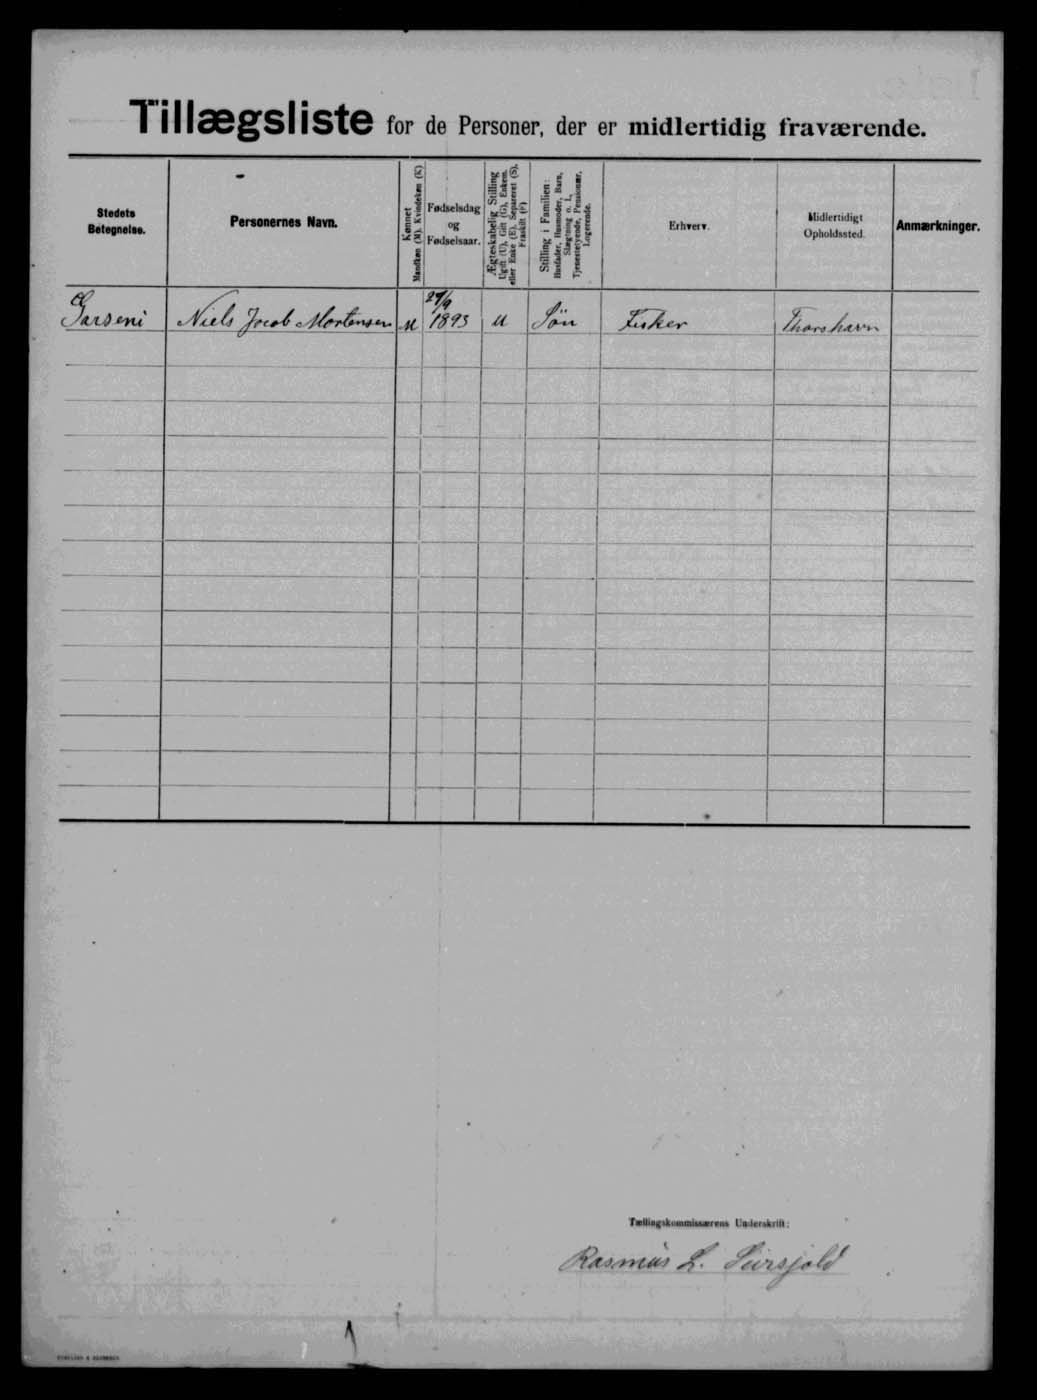 Tillægsliste for de Personer, der er midlertidig fraværende.
Stedets Betegnelse.
Personernes Navn.
Kønnet
Mandkøn (M). Kvindekøn (K)
Fødselsdag
og
Fødselsaar.
Ægteskabelig Stilling
Ugift (U), Gift (G), Enkem.
eller Enke (E), Separeret (S),
Fraskilt (F)
Stilling i Familien:
Husfader, Husmoder, Barn,
Slægtning o. l.,
Tjenestetyende, Pensionær,
Logerende.
Erhverv.
Midlertidigt
Opholdssted.
Anmærkninger.
Garseni Niels Jacob Mortensen M 29/9 1893 U Søn Fisker Thorshavn
Tællingskommissærens Underskrift:
Rasmus L.